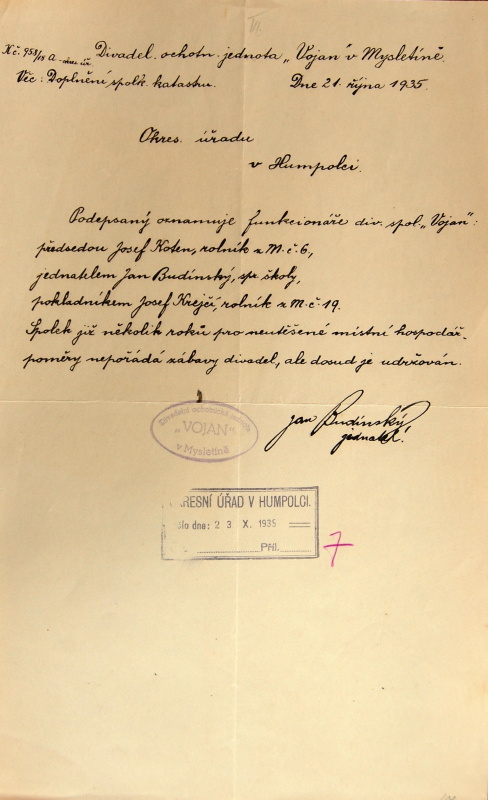 K č. 958/ A
Divadel. ochotn. jednota „Vojan" v Mysletíně.
Věc: Doplnění spolk. katastru.
Dne 21. října 1935.
Okres. úřadu
v Humpolci.
Podepsaný oznamuje funkcionáře div. spol. „Vojan":
předsedou Josef Koten, rolník z M. č. 6,
jednatelem Jan Budínský, spr. školy,
pokladníkem Josef Krejčí, rolník z M. č. 19.
Spolek již několik roků pro neutěšené místní hospodář.
poměry nepořádá zábavy divadel, ale dosud je udržován.
Jan Budínský
jednatel.
Divadelní ochotnická jednota
„VOJAN"
v Mysletíně
RESNÍ ÚŘAD V HUMPOLCI.
šlo dne: 23 X. 1935
Příl.
7